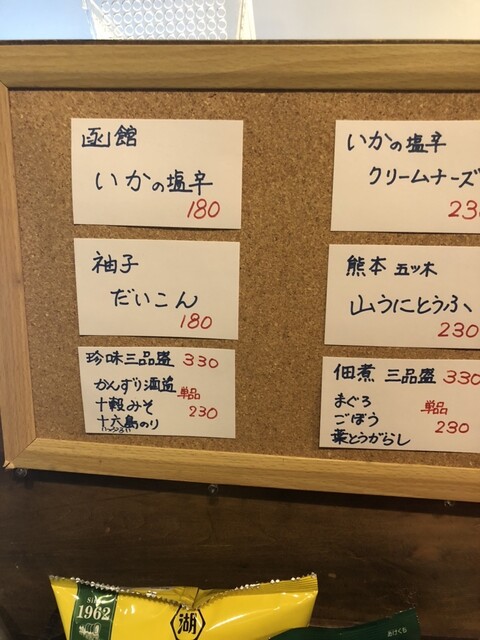 函館
いかの塩辛
180
いかの塩辛
クリームチーズ
230
袖子
だいこん
180
熊本 五ツ木
山うにとうふ
230
珍味三品盛 330
かんずり酒盗
十穀みそ
十六島のり
うっぷるい
単品
230
佃煮 三品盛 330
まぐろ
ごぼう
葉とうがらし
単品
230
since
1962
湖
あけくち